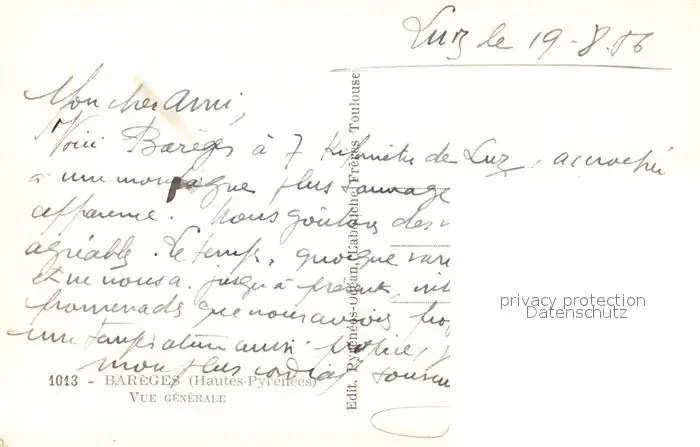 Luz le 19-8.56
Mon cher Ami,
Voici Barèges à 7 Kilomètres de Luz, accrochée
à une montagne plus sauvage
apparence. Nous goûtons des
agréable. Le temps, quoique vari
et ne nous a, jusqu'à présent, int
promenades que nous avons pro
une température aussi propice,
mon plus cordial souven
1013 - BARÈGES (Hautes-Pyrénées)
VUE GÉNÉRALE
Edit. Pyrénées-Océan, Labouche Frères Toulouse
privacy protection
Datenschutz